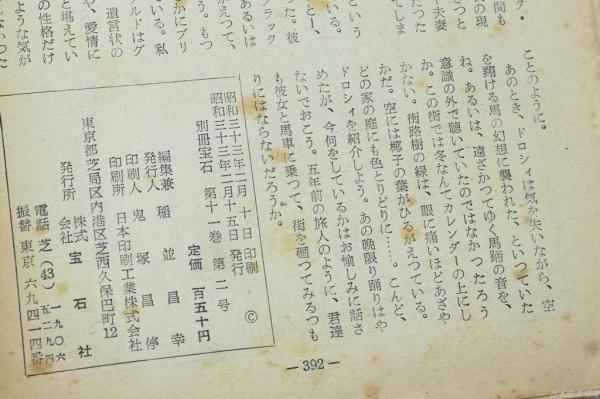 ことのように。
あのとき、ドロシイは気を失いながら、空
を翔ける馬の幻想に襲われた、といつていた
ね。あるいは、遠ざかつてゆく馬蹄の音を、
意識の外で聴いていたのではなかつたろう
か。この街では冬なんてカレンダーの上にし
かない。街路樹の緑は、眼に痛いほどあざや
かだ。空には椰子の葉がひるがえつている。
どの家の庭にも色とりどりに……。こんど、
ドロシイを紹介しよう。あの晩限り踊りはや
めたが、今何をしているかはお愉しみに話さ
ないでおこう。五年前の旅人のように、君達
も彼女と馬車に乗つて、街を廻つてみるつも
りにはならないだろうか。
昭和三十三年二月十日印刷
昭和三十三年二月十五日発行
©
別冊宝石 第十一巻 第二号
定価 百五十円
編集兼発行人 稲並昌幸
印刷人 鬼塚昌停
印刷所 日本印刷工業株式会社
東京都芝局区内港区芝西久保巴町12
発行所 株式会社 宝石社
電話 芝(43) 一九〇六 五二九四
振替 東京 六九四一四番
—392—
間も
の現
夫妻
たつた
てしま
という
いる。
とー、
た。彼
ラック
あるいは
がえつて、
う。もつ
かにブリ
る。私
ルドはグ
遺言状の
や、愛情に
と堪えてい
の性格だけ
ような気が